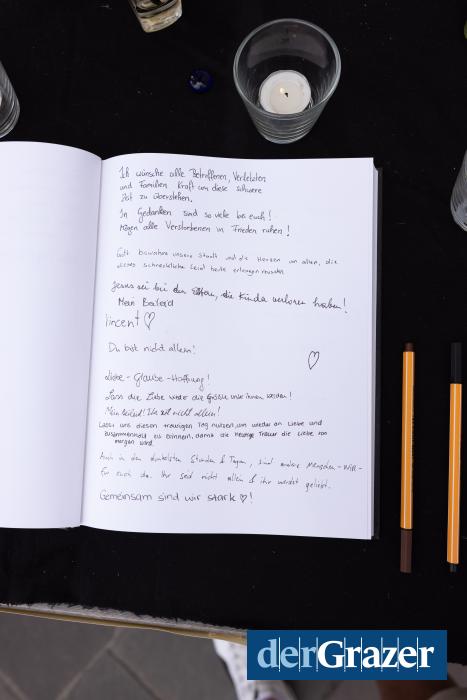 Ich wünsche alle Betroffenen, Verletzten
und Familien Kraft um diese schwere
Zeit zu überstehen.
In Gedanken sind so viele bei euch!
Mögen alle Verstorbenen in Frieden ruhen!
Gott bewahre unsere Stadt und die Herzen von allen, die
dieses schreckliche Leid heute
Jesus sei bei den Eltern, die Kinder verloren haben!
Mein Beileid
Vincent ♡
Du bist nicht allein!
♡
Liebe - Glaube - Hoffnung!
Lass die Liebe werde die Größte unter ihnen werden!
Mein Beileid! Ihr seid nicht allein!
Lasst uns diesen traurigen Tag nutzen, um wieder an Liebe und
Zusammenhalt zu erinnern, damit die heutige Trauer die Liebe von
morgen wird.
Auch in den dunkelsten Stunden & Tagen, sind andere Menschen - WIR -
für euch da. Ihr seid nicht allein & ihr werdet geliebt.
Gemeinsam sind wir stark ♡!
derGrazer